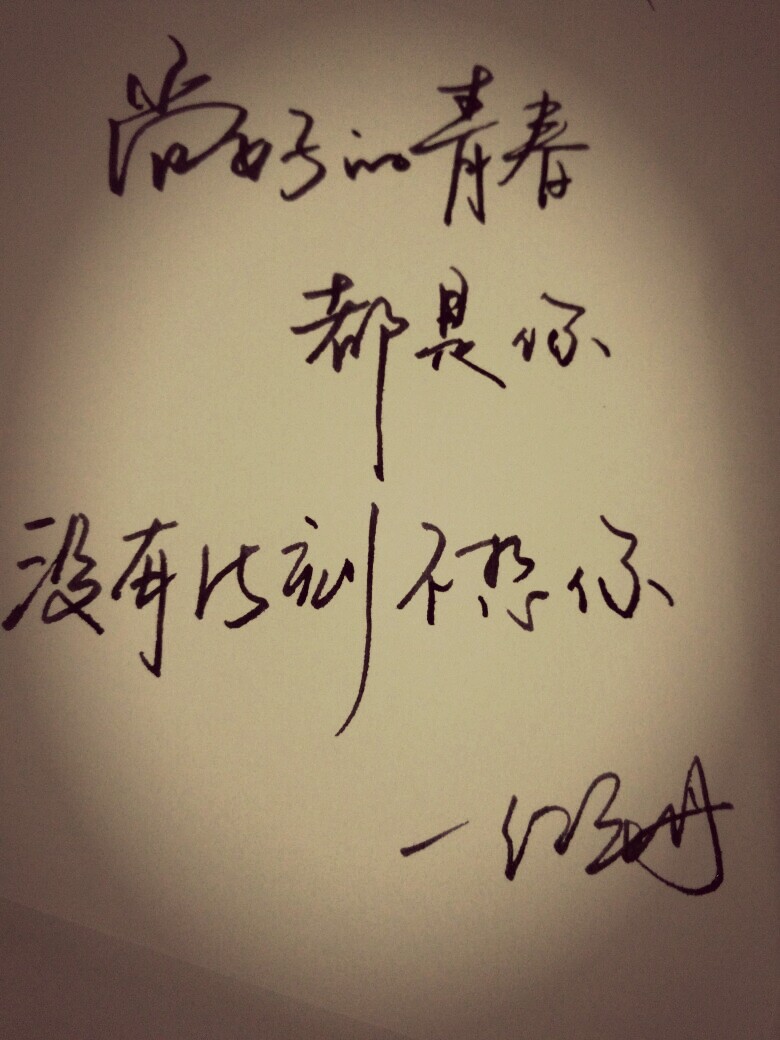 尚好的青春
都是你
没有刻不想你